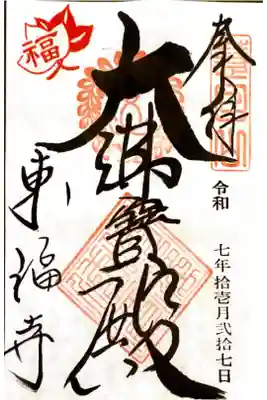 奉拝
令和 七年拾壱月弐拾七日
大佛寶殿
東福寺
福